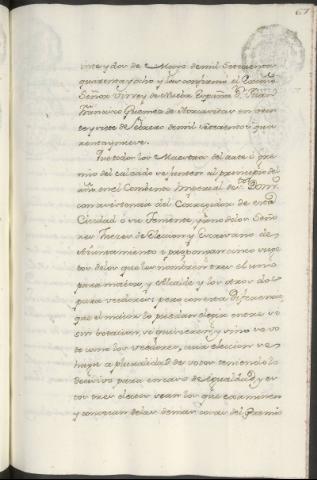 67
inte y dos de Mayo de mil setecientos
quarenta y ocho y las confirmo el Excmo
Señor Virrey de Nueva España Dn Juan
Francisco Guemes de Horcasitas en veinte
y siete de Febrero de mil setecientos qua
renta y nueve.
Que todos los Maestros del arte ò gre
mio del calzado se junten al principio de
año en el Combento Imperial de Sto Domo
con asistencia del Corregidor de esta
Ciudad ò su Teniente, y uno de los Seño
res Jueces de Eleccion, y Escrivano de
Ayuntamiento y propongan cinco suge
tos de los que se nombren tres el uno
para maior, y Alcalde y los otros dos
para veedores pero con esta diferencia,
que el maior lo puedan elegir entre si
sin botacion, si quisieren, y sino se vo
te como los veedores, cuia eleccion se
haga a pluralidad de votos teniendolo
decisivo para en caso de igualdad, y es
tos tres electos sean los que examinen
y conozcan de las demas cosas del Gremio